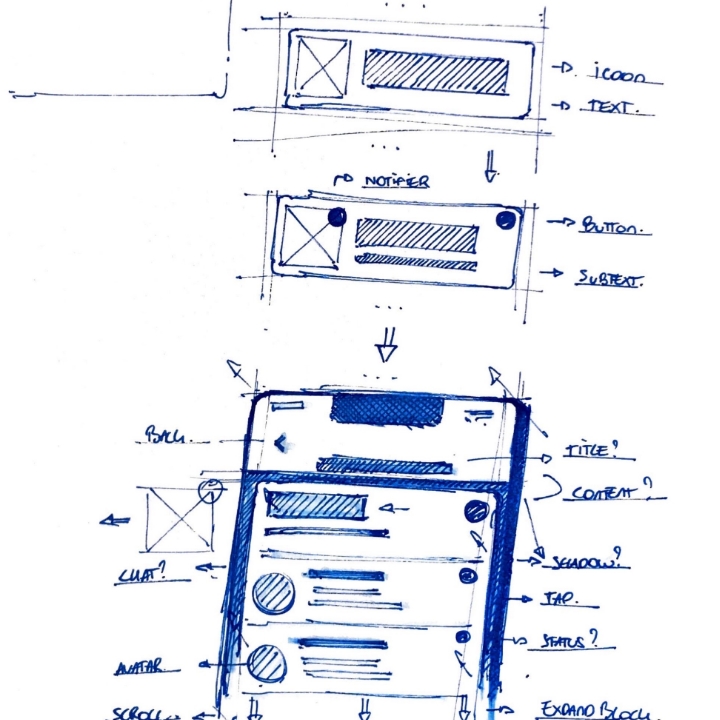 icoon
TEXT.
NOTIFIER
BUTTON.
SUBTEXT.
BACK
TITLE?
CONTENT?
CHAT?
SHADOW?
TAP.
STATUS?
AVATAR
SCROLL
EXPAND BLOCK.